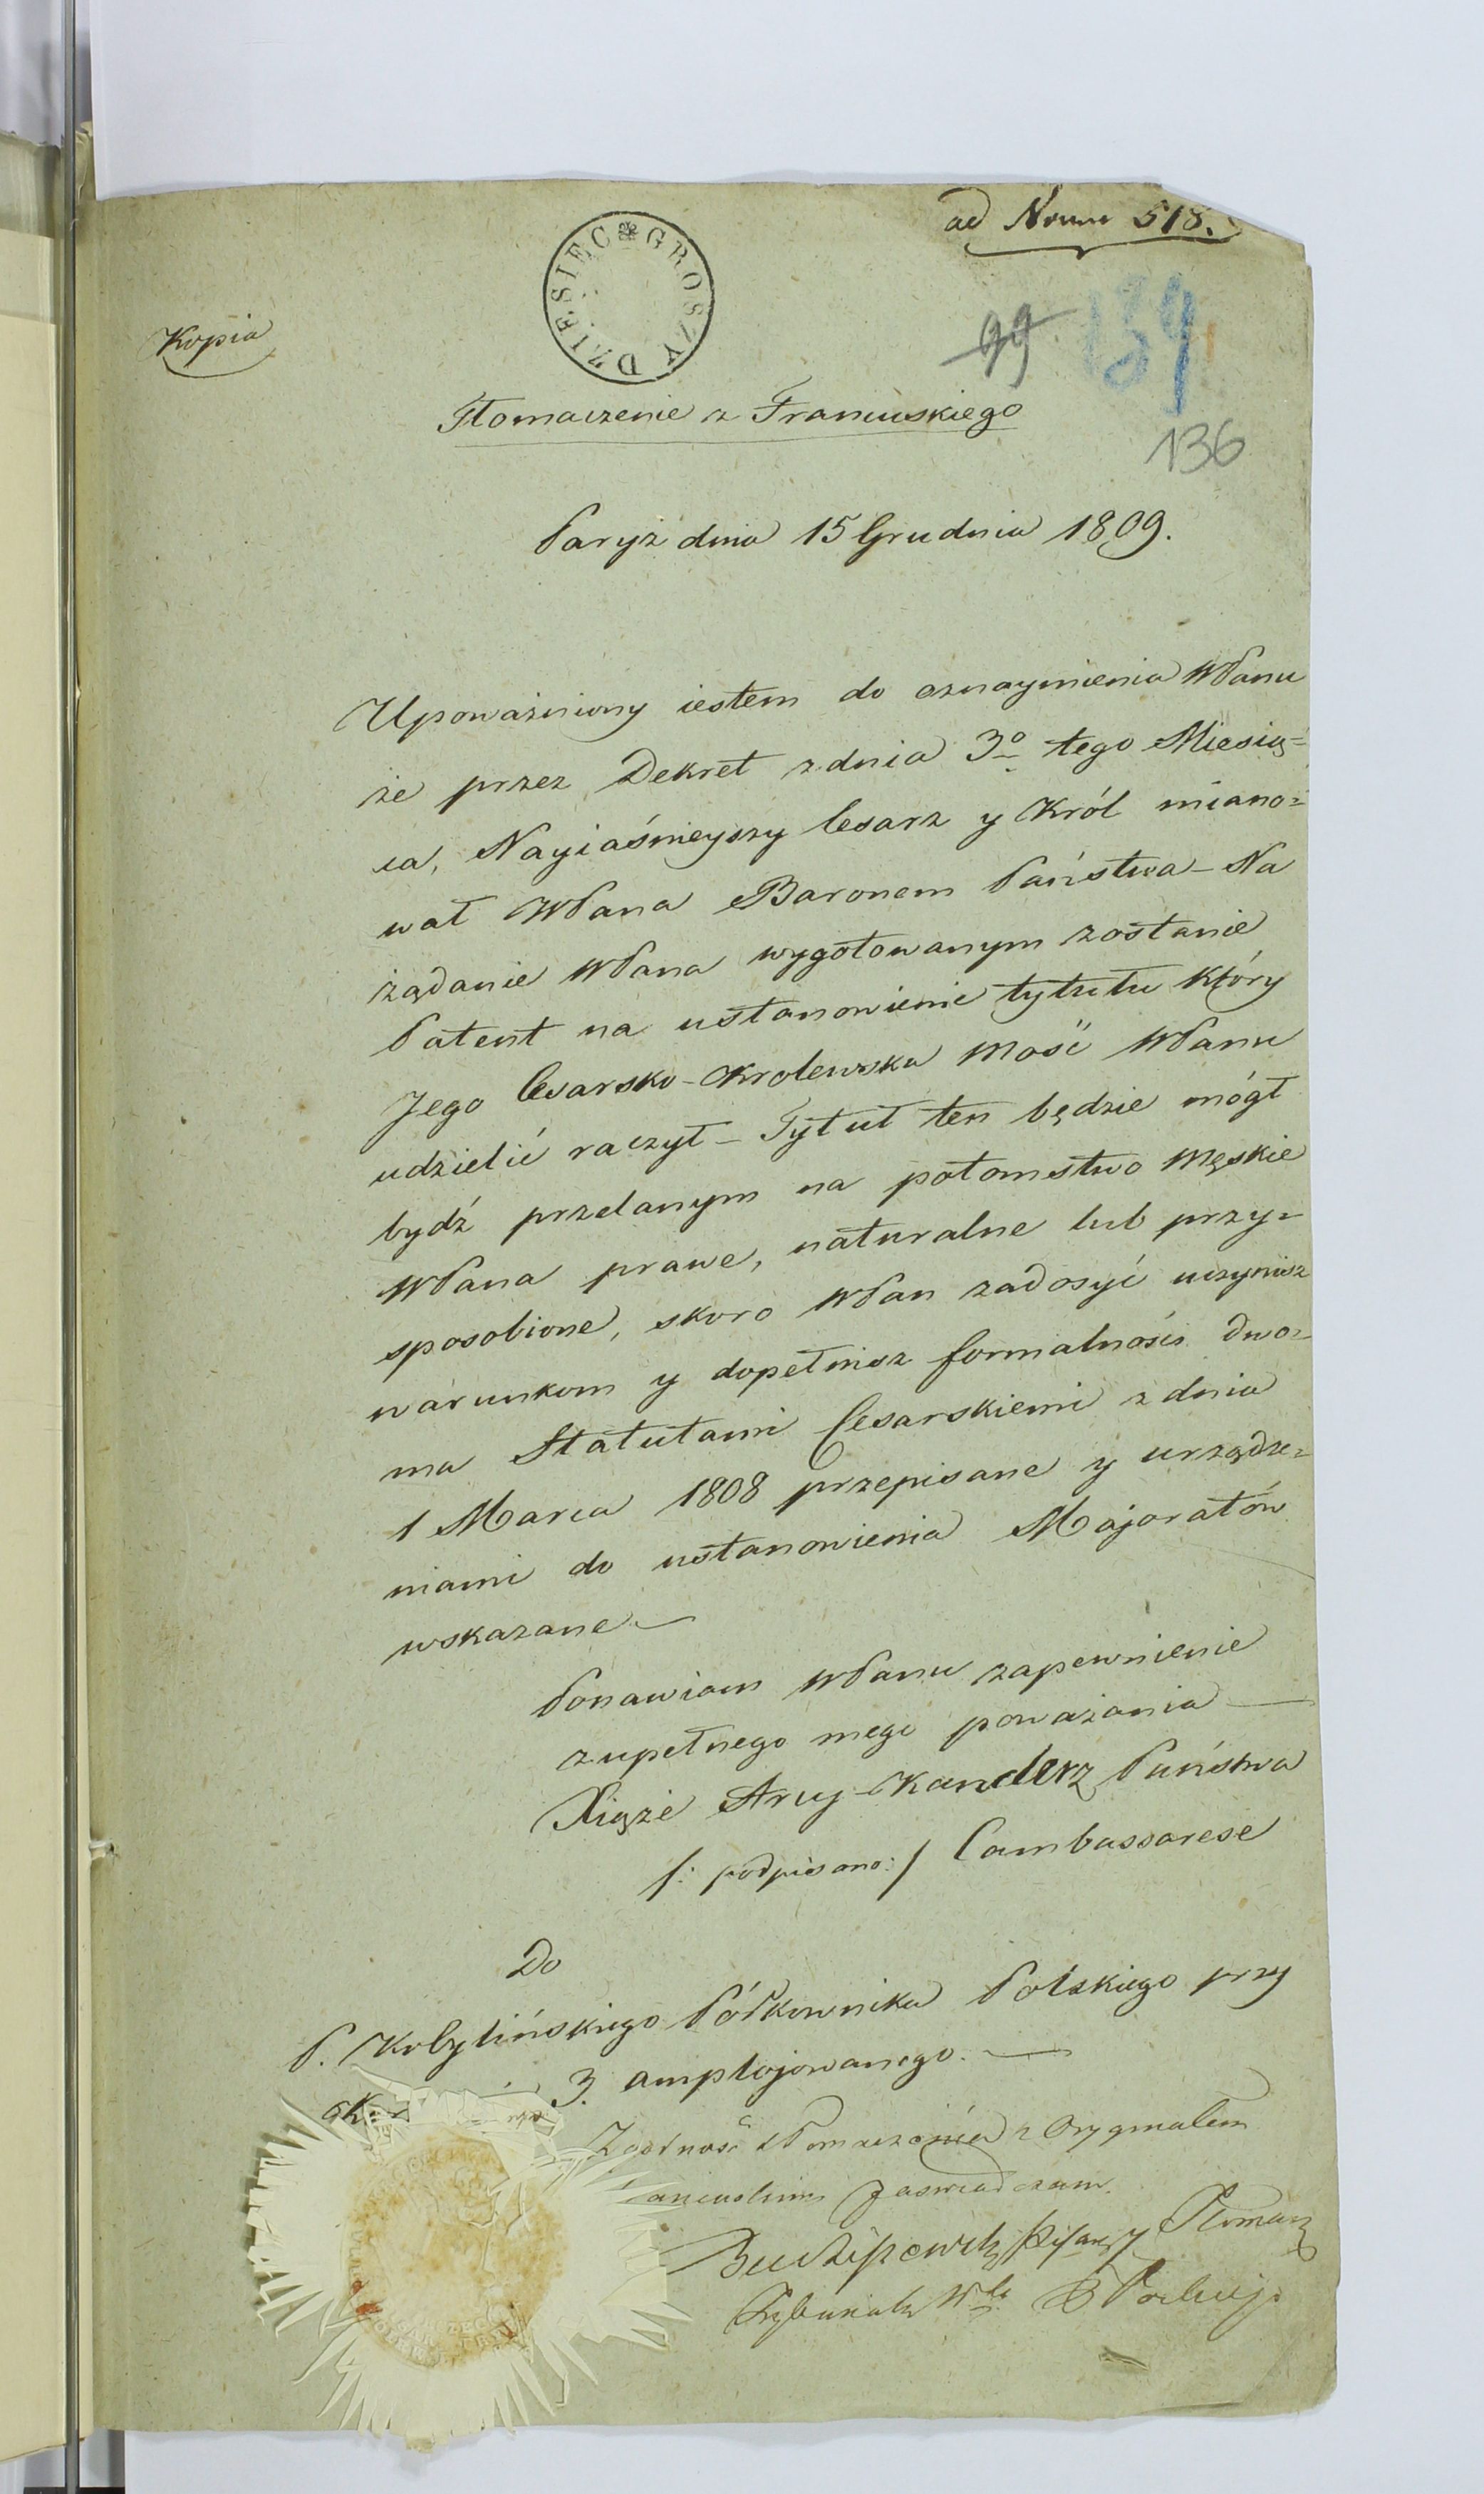 ad Nrum 518.
DZIESIĘC GROSZY
Kopia
99 139
Tłomaczenie z Francuskiego
136
Paryż dnia 15 Grudnia 1809.
Upoważniony iestem do oznaymienia WPanu
że przez Dekret z dnia 3º tego Miesią=
ca, Nayiaśnieyszy Cesarz y Król miano=
wał WPana Baronem Państwa – Na
żądanie WPana wygotowanym zostanie
Patent na ustanowienie tytułu który
Jego Cesarsko-Krolewska Mość WPanu
udzielić raczył – Tytuł ten będzie mógł
bydź przelanym na potomstwo męskie
WPana prawe, naturalne lub przy=
sposobione, skoro WPan zadosyć uczynisz
warunkom y dopełnisz formalności dwo=
ma Statutami Cesarskiemi z dnia
1 Marca 1808 przepisane y urządze=
niami do ustanowienia Majoratów
wskazane. —
Ponawiam WPanu zapewnienie
zupełnego mego poważania —
Xiąże Arcy-Kanclerz Państwa
/: podpisano :/ Cambassarese
Do
P. Kobylińskiego Półkownika Polskiego przy
3. amplojowanego. —
Zgodność tłomaczenia z Oryginałem
zaświadczam.
Pisarz Tłomacz
Trybunału